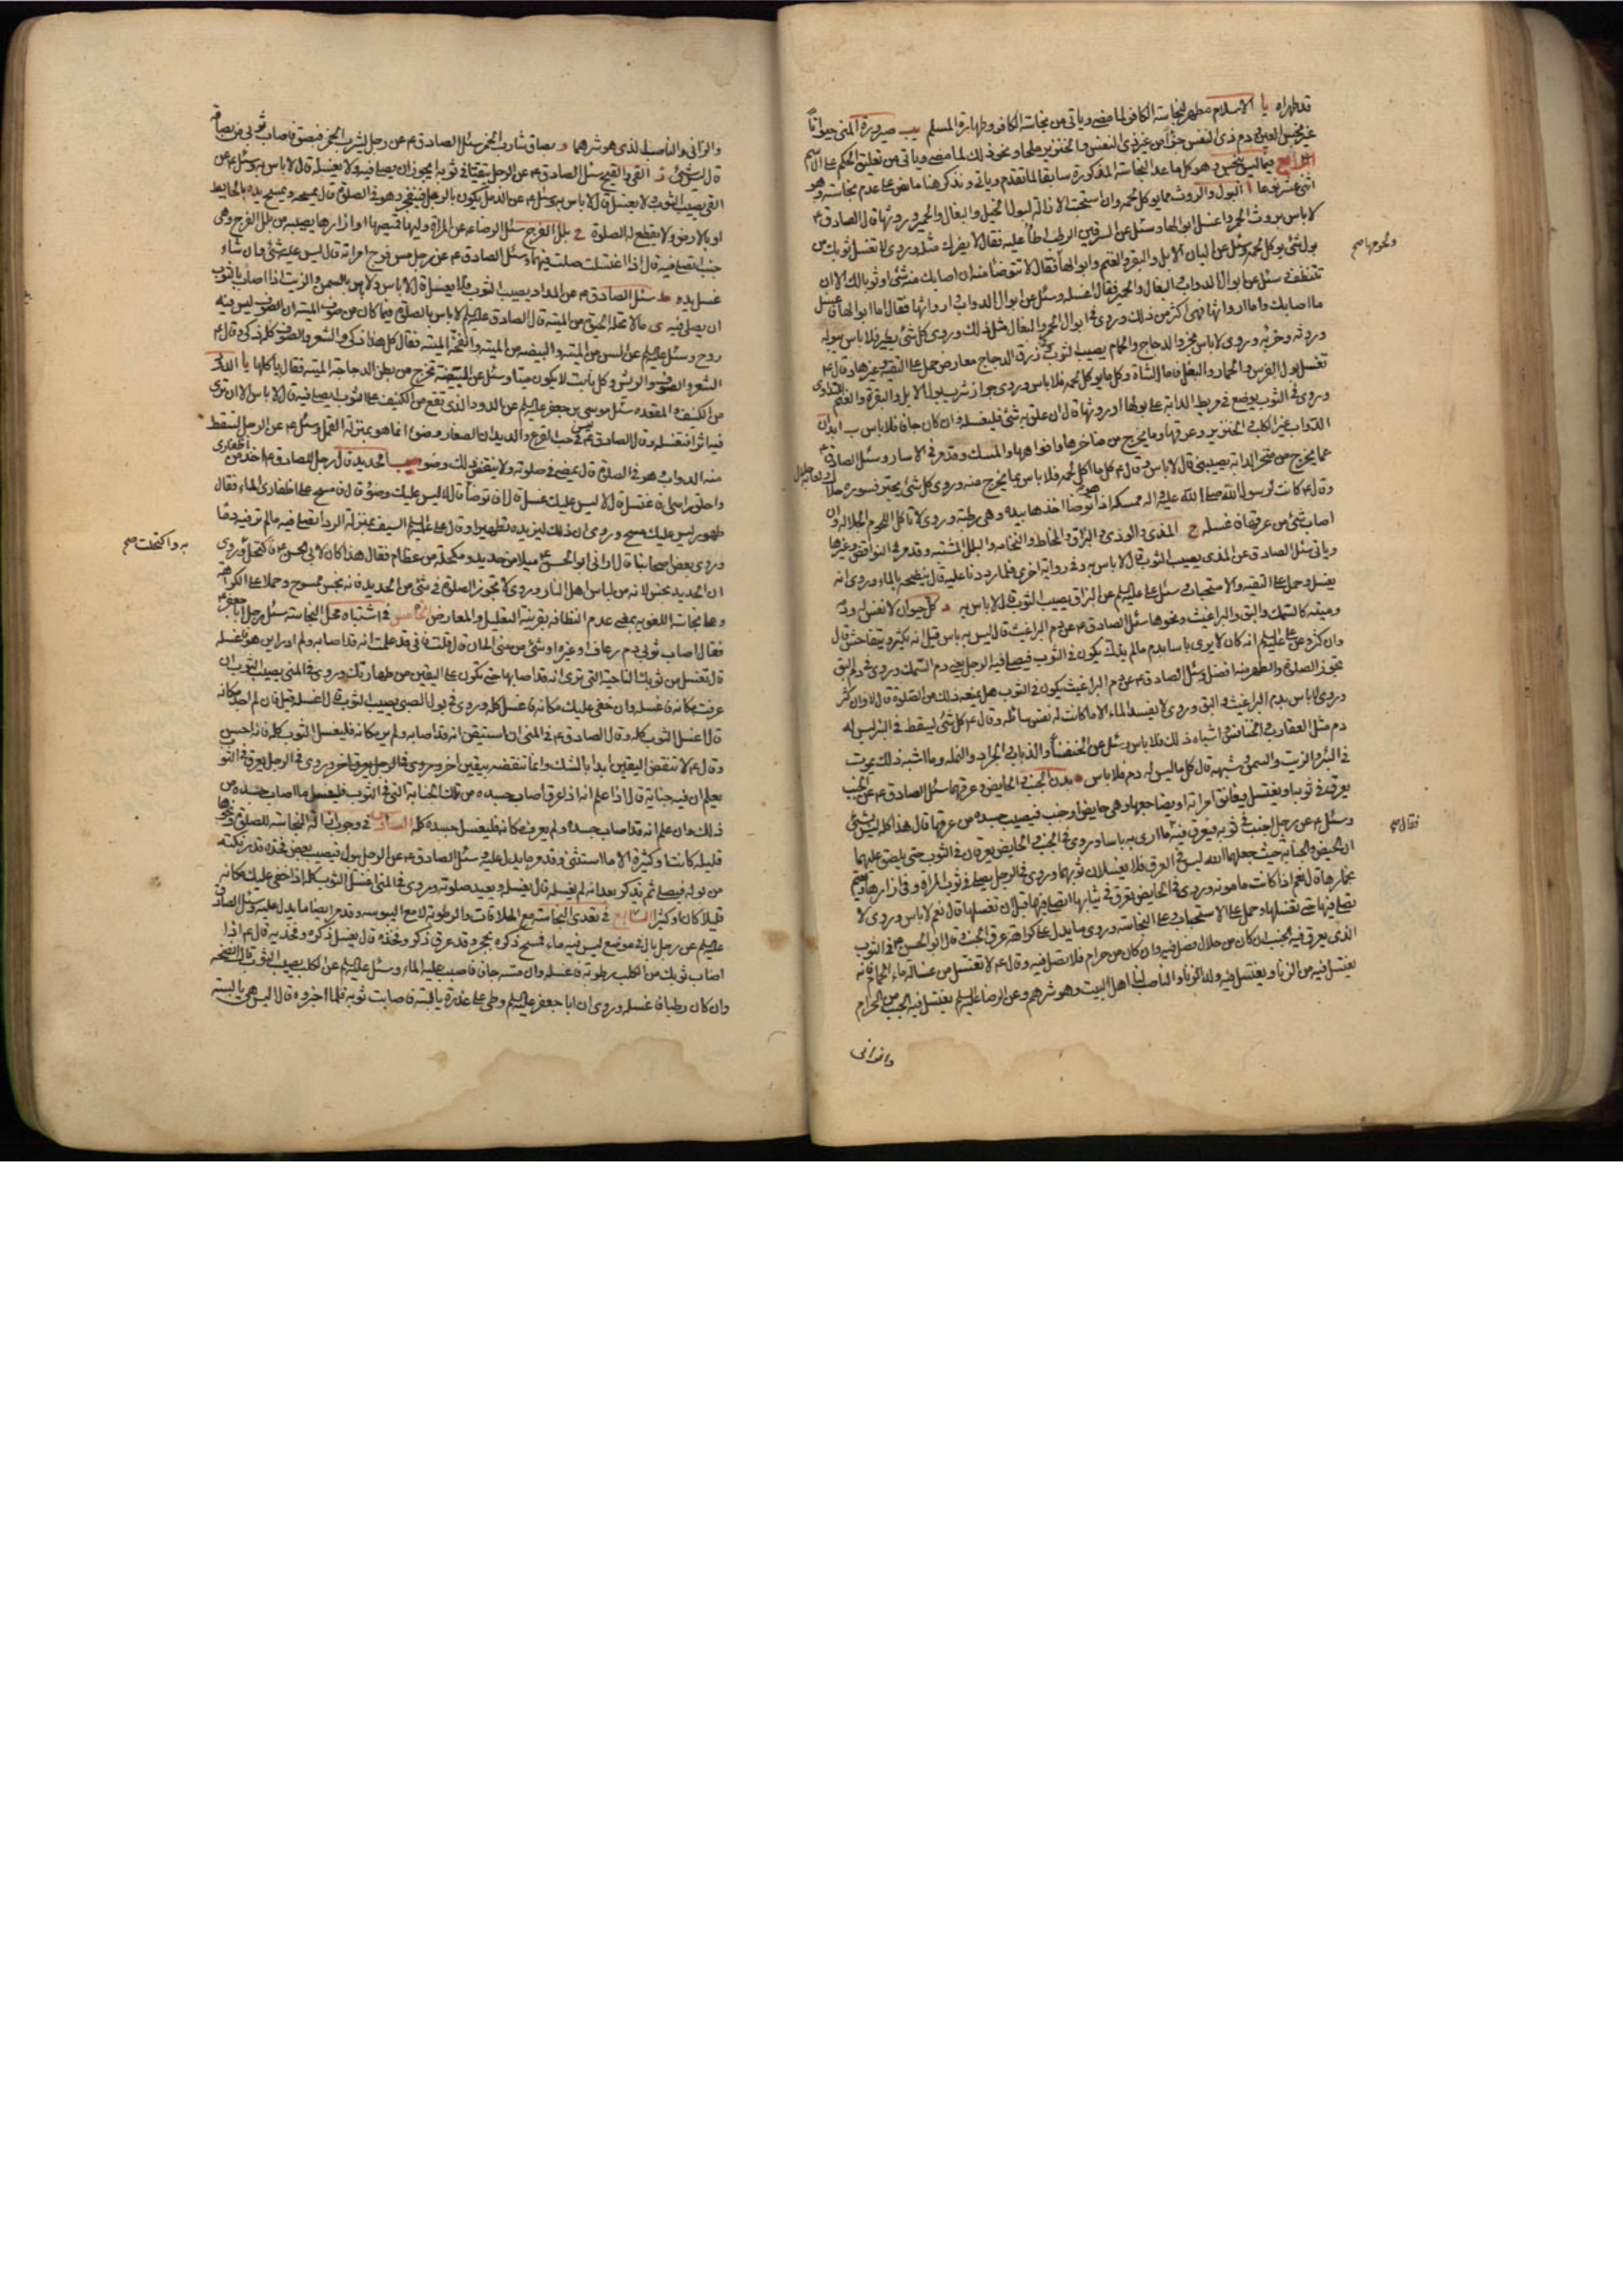 قد طهراه يا الاسلام مطهر لنجاسة الكافر لما مضى وياتي من نجاسة الكافر وطهارة المسلم يب صيرورة المني حيوانا
غير نجس العين دم ذي النفس من غير ذي النفس والخنزير ملحا ونحو ذلك لما مضى وياتي من تعليق الحكم على الاسم
الرابع فيما ليس بنجس وهو كل ما عدا النجاسة المذكورة سابقا لما تقدم وياتي ونذكر هنا ما نص على عدم نجاسته وهو
اثنى عشر نوعا ا البول والروث مما يوكل لحمه وان استحبت الازالة لبول الخيل والبغال والحمير وروثها قال الصادق ع
لا باس بروث الحمر واغسل ابوالها وسئل عن السرقين الرطب اطأ عليه فقال لا يضرك مثله وروي لا تغسل ثوبك من
بول شئ يوكل لحمه وسئل عن البان الابل والبقر والغنم وابوالها فقال لا تتوضا منه ان اصابك منه شئ او ثوبا لك الا ان
تتنظف وسئل عن ابوال الدواب والبغال والحمير فقال اغسله وسئل عن ابوال الدواب وارواثها فقال اما ابوالها فاغسل
ما اصابك واما ارواثها فهي اكثر من ذلك وروي في ابوال الحمر والبغال مثل ذلك وروي كل شئ يطير فلا باس ببوله
وروي لا باس بخرء الدجاج والحمام يصيب الثوب زرق الدجاج معارض حمل على التقية وغيرها وقال ع
تغسل بول الفرس والحمار والبغل فاما الشاة وكل ما يوكل لحمه فلا باس وروي جواز شرب بول الابل والبقرة والغنم للتداوي
وروي في الثوب يوضع في مربط الدابة على بولها وروثها قال ان علق به شئ فليغسله وان كان جافا فلا باس ب ابدان
الدواب غير الكلب والخنزير وعرقها وما يخرج من مناخرها وافواهها والمسك وقد مر في الاسار وسئل الصادق ع
عما يخرج من منخر الدابة يصيبني قال لا باس وقال ع كل ما اكل لحمه فلا باس بما يخرج منه وروي كل شئ يجتر فسوره حلال ولعابه حلال
وقال ع كانت لرسول الله صلى الله عليه واله ممسكة اذا توضا اخذها بيده وهي رطبة وروي لا تاكل اللحوم الجلالة وان
اصاب شئ من عرقها فاغسله ج المذي والوذي والبزاق والمخاط والنخامة والبلل المشتبه وقد مر في النواقض وغيرها
وياتي سئل الصادق عن المذي يصيب الثوب قال لا باس به وفي رواية اخرى فلما رددنا عليه قال ينضحه بالماء وروي انه
يغسل وحمل على التقية والاستحباب وسئل علي عليه السلم عن البزاق يصيب الثوب قال لا باس به د كل حيوان لا نفس له ودمه
وميته كالسمك والبق والبراغيث ونحوها سئل الصادق ع عن دم البراغيث قال ليس به باس قيل انه يكثر ويتفاحش قال
وان كثر وعن علي عليه السلم انه كان لا يرى باسا بدم ما لم يذك يكون في الثوب فيصلي فيه الرجل يعني دم السمك وروي في دم البق
تجوز الصلوة والطهر منه افضل وسئل الصادق ع عن دم البراغيث يكون في الثوب هل يمنعه ذلك من الصلوة قال لا وان كثر
وروي لا باس بدم البراغيث والبق وروي لا يفسد الماء الا ما كانت له نفس سائله وقال ع كل شئ يسقط في البئر ليس له
دم مثل العقارب والخنافس واشباه ذلك فلا باس وسئل عن الخنفساء والذباب والجراد والنمله وما اشبه ذلك يموت
في البئر والزيت والسمن وشبهه قال كل ما ليس له دم فلا باس ه بدن الجنب والحايض وعرقهما سئل الصادق ع عن الجنب
يعرق في ثوبه او يغتسل فيعانق امراته او يضاجعها وهي حايض او جنب فيصيب جسده من عرقها قال هذا كله ليس بشئ
وسئل ع عن رجل اجنب في ثوبه فيعرق فيه فقال ما ارى به باسا وروي في الجنب والحايض يعرقان في الثوب حتى يلصق عليهما
ان الحيض والجنابة حيث جعلهما الله ليس في العرق فلا يغسلان ثوبهما وروي في الرجل يصلي في ثوب المراة وفي ازارها ويعتم
بخمارها قال نعم اذا كانت مامونة وروي في الحايض تعرق في ثيابها اتصلي فيها قبل ان تغسلها قال نعم لا باس وروي لا
تصلي فيها حتى تغسلها وحمل على الاستحباب وعلى النجاسة وروي ما يدل على كراهة عرق الجنب وقال ابو الحسن ع في الثوب
الذي يعرق فيه الجنب ان كان من حلال فصل فيه وان كان من حرام فلا تصل فيه وقال ع لا تغتسل من غسالة ماء الحمام فانه
يغتسل فيه من الزنا ويغتسل فيه ولد الزنا والناصب لنا اهل البيت وهو شرهم وعن الرضا عليه السلم يغتسل فيه الجنب من الحرام
والزاني
ونحوها صح
فقال صح
والزاني والناصب الذي هو شرهما و بصاق شارب الخمر سئل الصادق ع عن رجل يشرب الخمر فيبصق فاصاب ثوبي من بصاقه
قال ليس بشئ ز القئ والقيح سئل الصادق ع عن الرجل يتقيا في ثوبه ايجوز ان يصلي فيه ولا يغسله قال لا باس به وسئل ع عن
القئ يصيب الثوب ولا يغسل قال لا باس به وسئل ع عن الدمل يكون بالرجل فينفجر وهو في الصلوة قال يمسحه ويمسح يده بالحايط
او بالارض ولا يقطع له الصلوة ح بلل الفرج سئل الرضا ع عن المراة وليها قميصها او ازارها يصيبه من بلل الفرج وهي
جنب اتصلي فيه قال اذا اغتسلت صلت فيهما وسئل الصادق ع عن رجل مس فرج امراته قال ليس عليه شئ وان شاء
غسل يده ط سئل الصادق ع عن المداد يصيب الثوب فلا يغسل قال لا باس ولا باس بالسمن والزيت اذا اصاب الثوب
ان يصلي فيه ى ما لا تحله الحيوة من الميتة قال الصادق عليه السلم لا باس بالصلوة فيما كان من صوف الميتة ان الصوف ليس فيه
روح وسئل عليه السلم عن السن من الميتة والبيضة من الميتة وانفحة الميتة فقال كل هذا ذكي والشعر والصوف كله ذكي وقال ع
الشعر والصوف والريش وكل نابت لا يكون ميتا وسئل عن البيضة تخرج من بطن الدجاجة الميتة فقال ياكلها يا الدود
من الكنيف والمقعدة سئل موسى بن جعفر عليه السلم عن الدود الذي تقع من الكنيف على الثوب ايصلي فيه قال لا باس الا ان ترى
فيه اثرا فتغسله وقال الصادق ع في حب القرع والديدان الصغار ليس وضوء انما هو بمنزلة القمل وسئل ع عن الرجل تسقط
منه الدواب وهو في الصلوة قال يمضي في صلوته ولا ينقض ذلك وضوءه يب الحديد قال رجل للصادق ع اخذ من اظفاري
واحلق راسي فاغتسل قال لا ليس عليك غسل قال فاتوضا قال لا ليس عليك وضوء قال فامسح على اظفاري الماء فقال
طهور ليس عليك مسح وروي ان ذلك ليزيده تطهيرا وقال علي عليه السلم السيف بمنزلة الردا تصلي فيه ما لم تر فيه دما
وروى بعض اصحابنا قال اراني ابو الحسن ع ميلا من حديد ومكحلة من عظام فقال هذا كان لابي الحسن ع فاكتحل وروي
ان الحديد نجس لانه من لباس اهل النار وروي لا تجوز الصلوة في شئ من الحديد فانه نجس ممسوح وحملا على الكراهة
وعلى نجاسة اللغوية بمعنى عدم النظافة بقرينة التعليل والمعارض الخامس في اشتباه محل النجاسة سئل رجل ابا جعفر ع
فقال اصاب ثوبي دم رعاف او غيره او شئ من مني الى ان قال قلت فاني قد علمت انه قد اصابه ولم ادر اين هو فاغسله
قال تغسل من ثوبك الناحية التي ترى انه قد اصابها حتى تكون على اليقين من طهارتك وروي في المني يصيب الثوب ان
عرفت مكانه فاغسله وان خفي عليك مكانه فاغسل كله وروي في بول الصبي يصيب الثوب قال اغسله قيل فان لم اجد مكانه
قال اغسل الثوب كله وقال الصادق ع في المني ان استيقن انه قد اصابه ولم ير مكانه فليغسل الثوب كله فانه احسن
وقال ع لا تنقض اليقين ابدا بالشك وانما تنقضه بيقين اخر وروي في الرجل يعرق في الثوب
يعلم ان فيه جنابة قال اذا علم انه اذا عرق اصاب جسده من تلك الجنابة التي في الثوب فليغسل ما اصاب جسده من
ذلك وان علم انه قد اصاب جسده ولم يعرف مكانه فليغسل جسده كله السادس في وجوب ازالة النجاسة للصلوة ونحوها
قليله كانت او كثيرة الا ما استثني وقد مر ما يدل عليه وسئل الصادق ع عن الرجل يبول فيصيب بعض فخذه قدر نكتة
من بوله فيصلي ثم يذكر بعد انه لم يغسله قال يغسله ويعيد صلوته وروي في المني اغسل الثوب كله اذا خفي عليك مكانه
قليلا كان او كثيرا السابع في تعدي النجاسة مع الملاقات والرطوبة لا مع اليبوسة وقد مر ايضا ما يدل عليه وسئل الصادق
عليه السلم عن رجل بال في موضع ليس فيه ماء فمسح ذكره بحجر وقد عرق ذكره وفخذه قال يغسل ذكره وفخذيه قال ع اذا
اصاب ثوبك من الكلب رطوبة فاغسله وان مسه جافا فاصبب عليه الماء وسئل عليه السلم عن الكلب يصيب الثوب قال انضحه
وان كان رطبا فاغسله وروي ان ابا جعفر عليه السلم وطئ على عذرة يابسة فاصابت ثوبه فلما اخبروه قال اليس هي يابسة
به واكتحلت صح